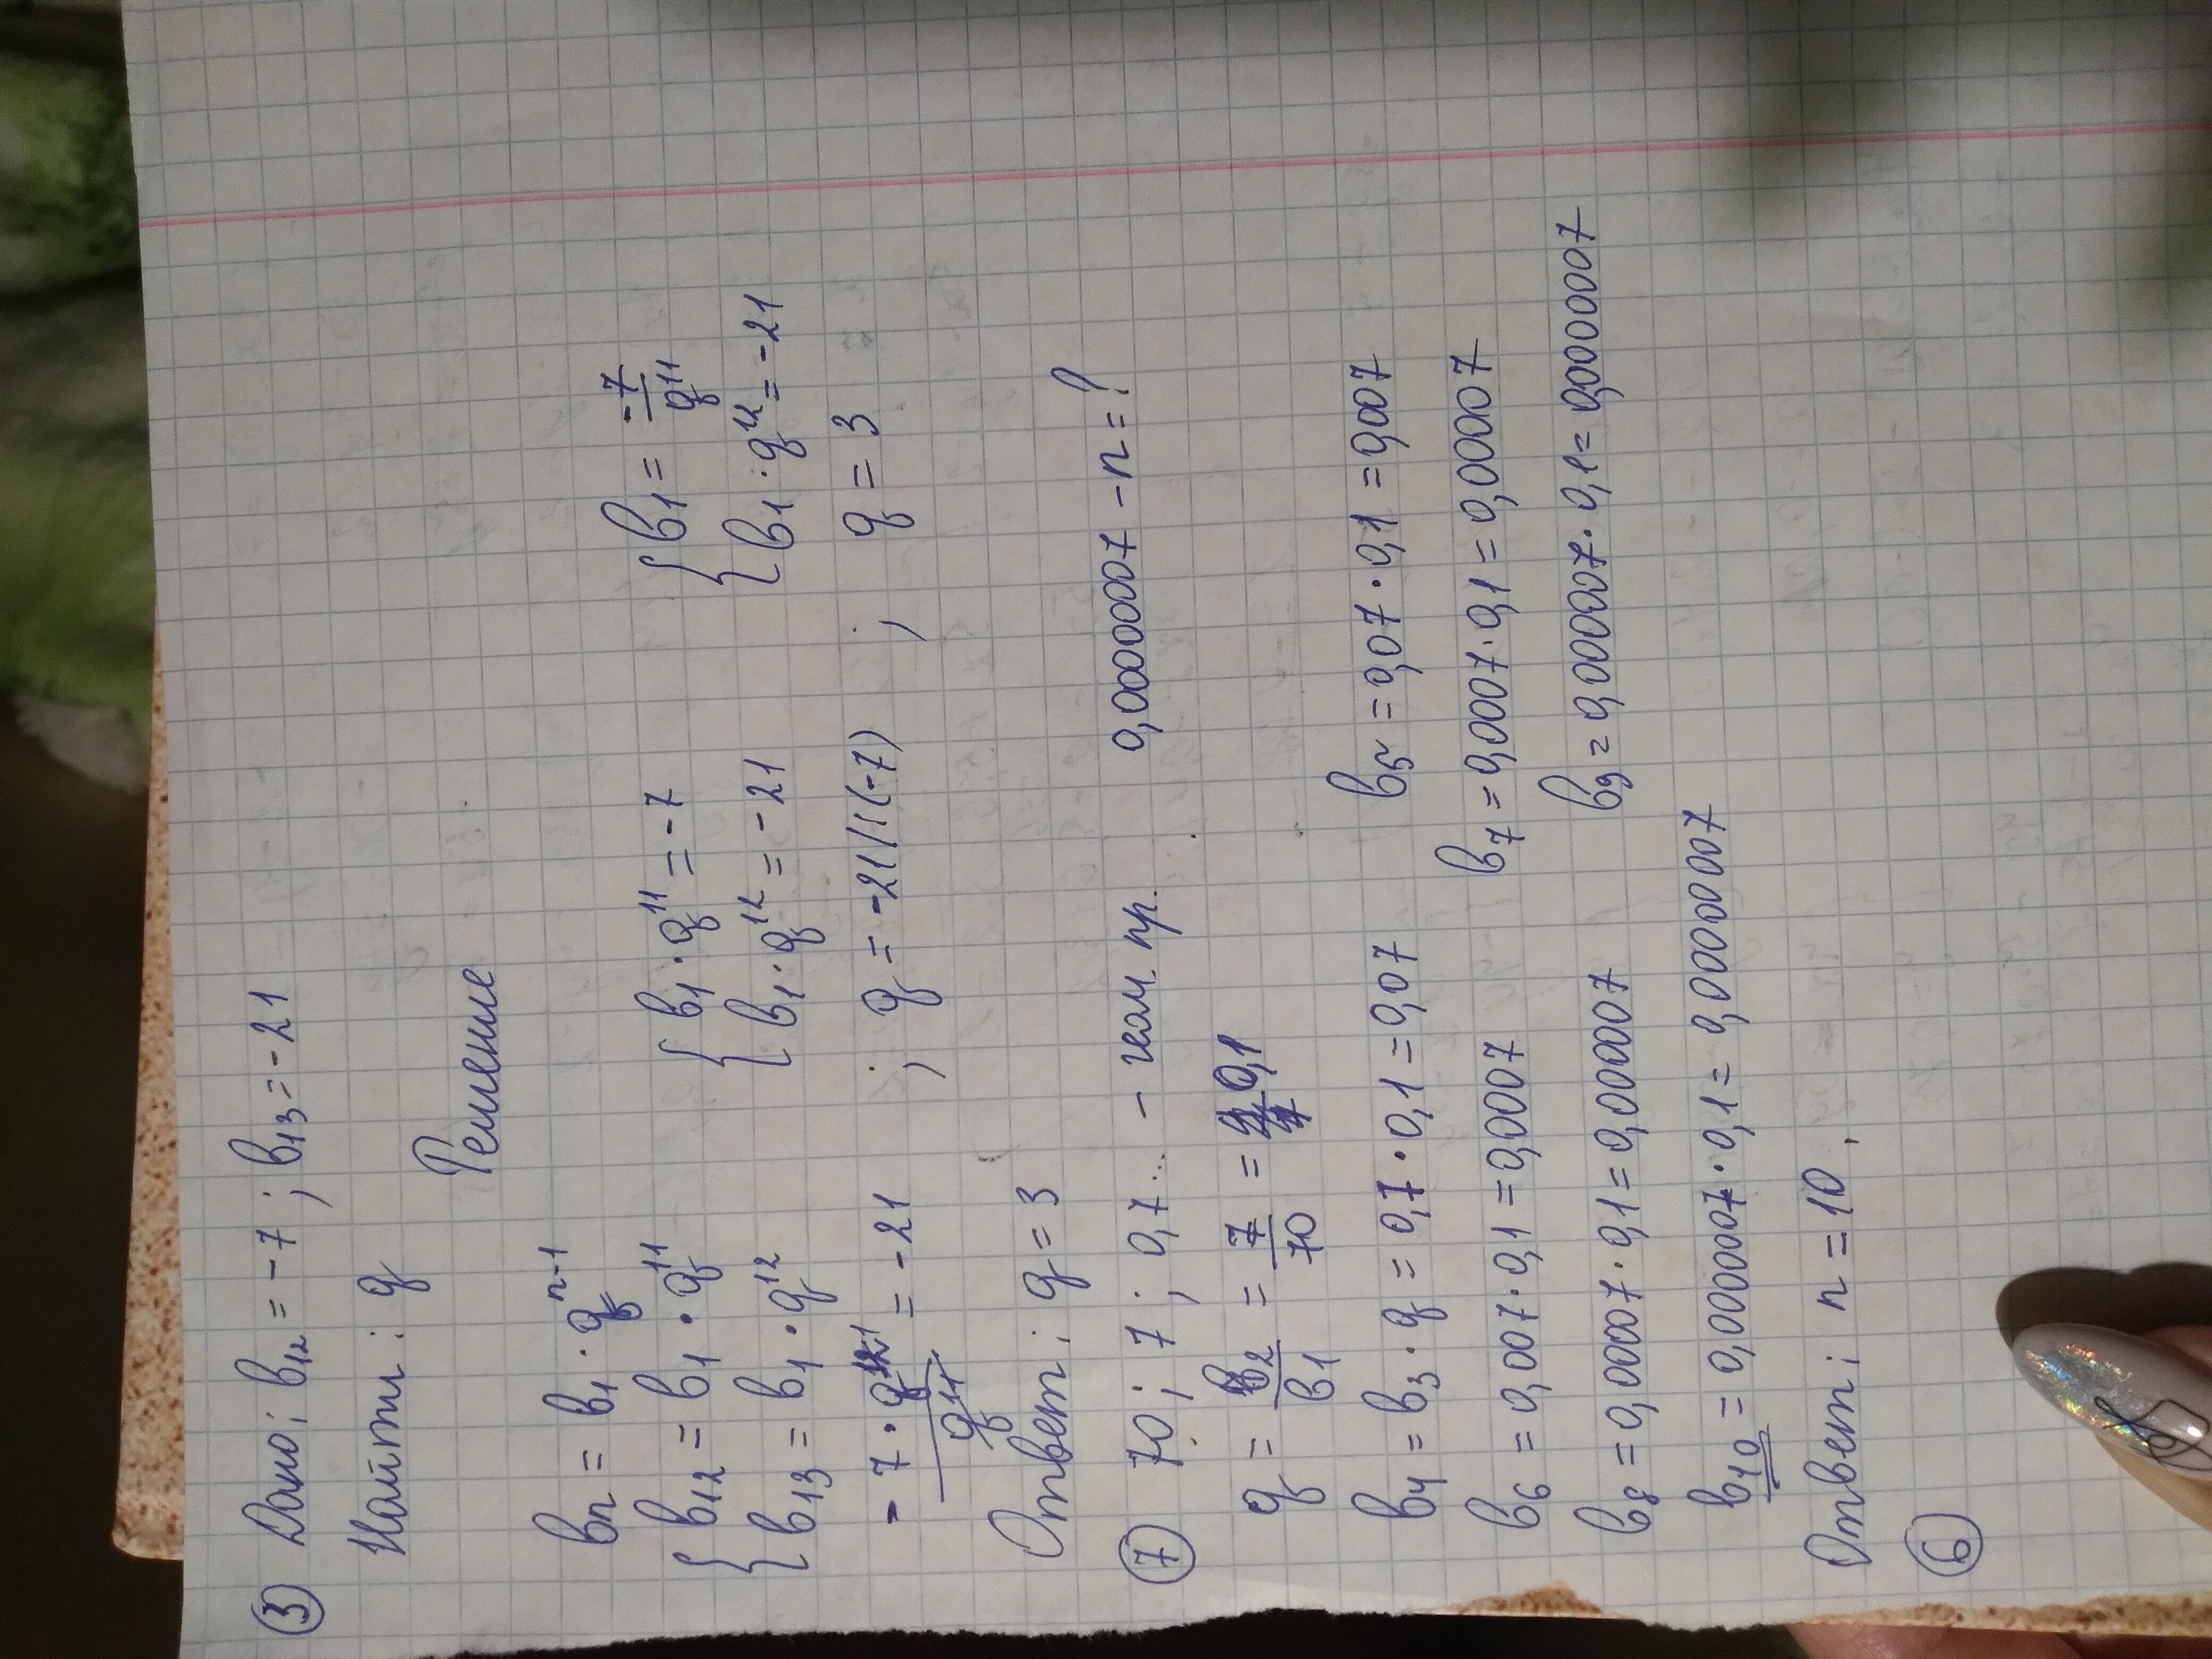 ③ Дано: b₁₂ = -7 ; b₁₃ = -21
Найти: q
Решение
bₙ = b₁ · qⁿ⁻¹
{ b₁₂ = b₁ · q¹¹ { b₁ · q¹¹ = -7 { b₁ = -7/q¹¹
{ b₁₃ = b₁ · q¹² { b₁ · q¹² = -21 { b₁ · q¹² = -21
-7 · q¹²/q¹¹ = -21 ; q = -21/(-7) ; q = 3
Ответ: q = 3
⑦ 70 ; 7 ; 0,7... - геом пр. 0,0000007 - n = ?
q = b₂/b₁ = 7/70 = 0,1
b₄ = b₃ · q = 0,7 · 0,1 = 0,07 b₅ = 0,07 · 0,1 = 0,007
b₆ = 0,007 · 0,1 = 0,0007 b₇ = 0,0007 · 0,1 = 0,00007
b₈ = 0,00007 · 0,1 = 0,000007 b₉ = 0,000007 · 0,1 = 0,0000007
b₁₀ = 0,0000007 · 0,1 = 0,00000007
Ответ: n = 10
⑥